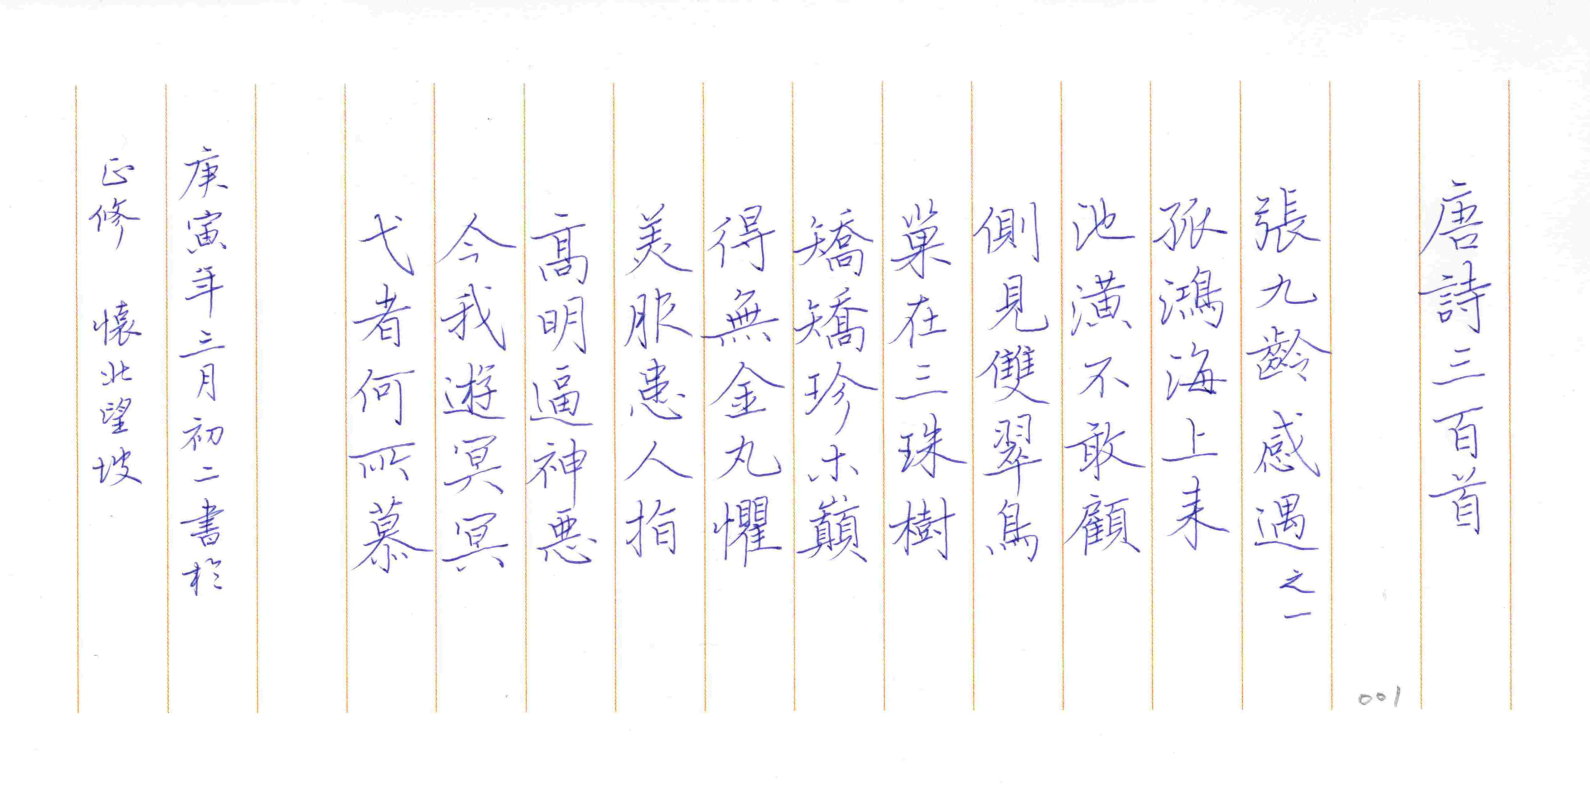 唐詩三百首
001
張九齡感遇之一
孤鴻海上来
池潢不敢顧
側見雙翠鳥
巢在三珠樹
矯矯珍木巔
得無金丸懼
美服患人指
高明逼神惡
今我遊冥冥
弋者何所慕
庚寅年三月初二書於
正修 懷北望坡